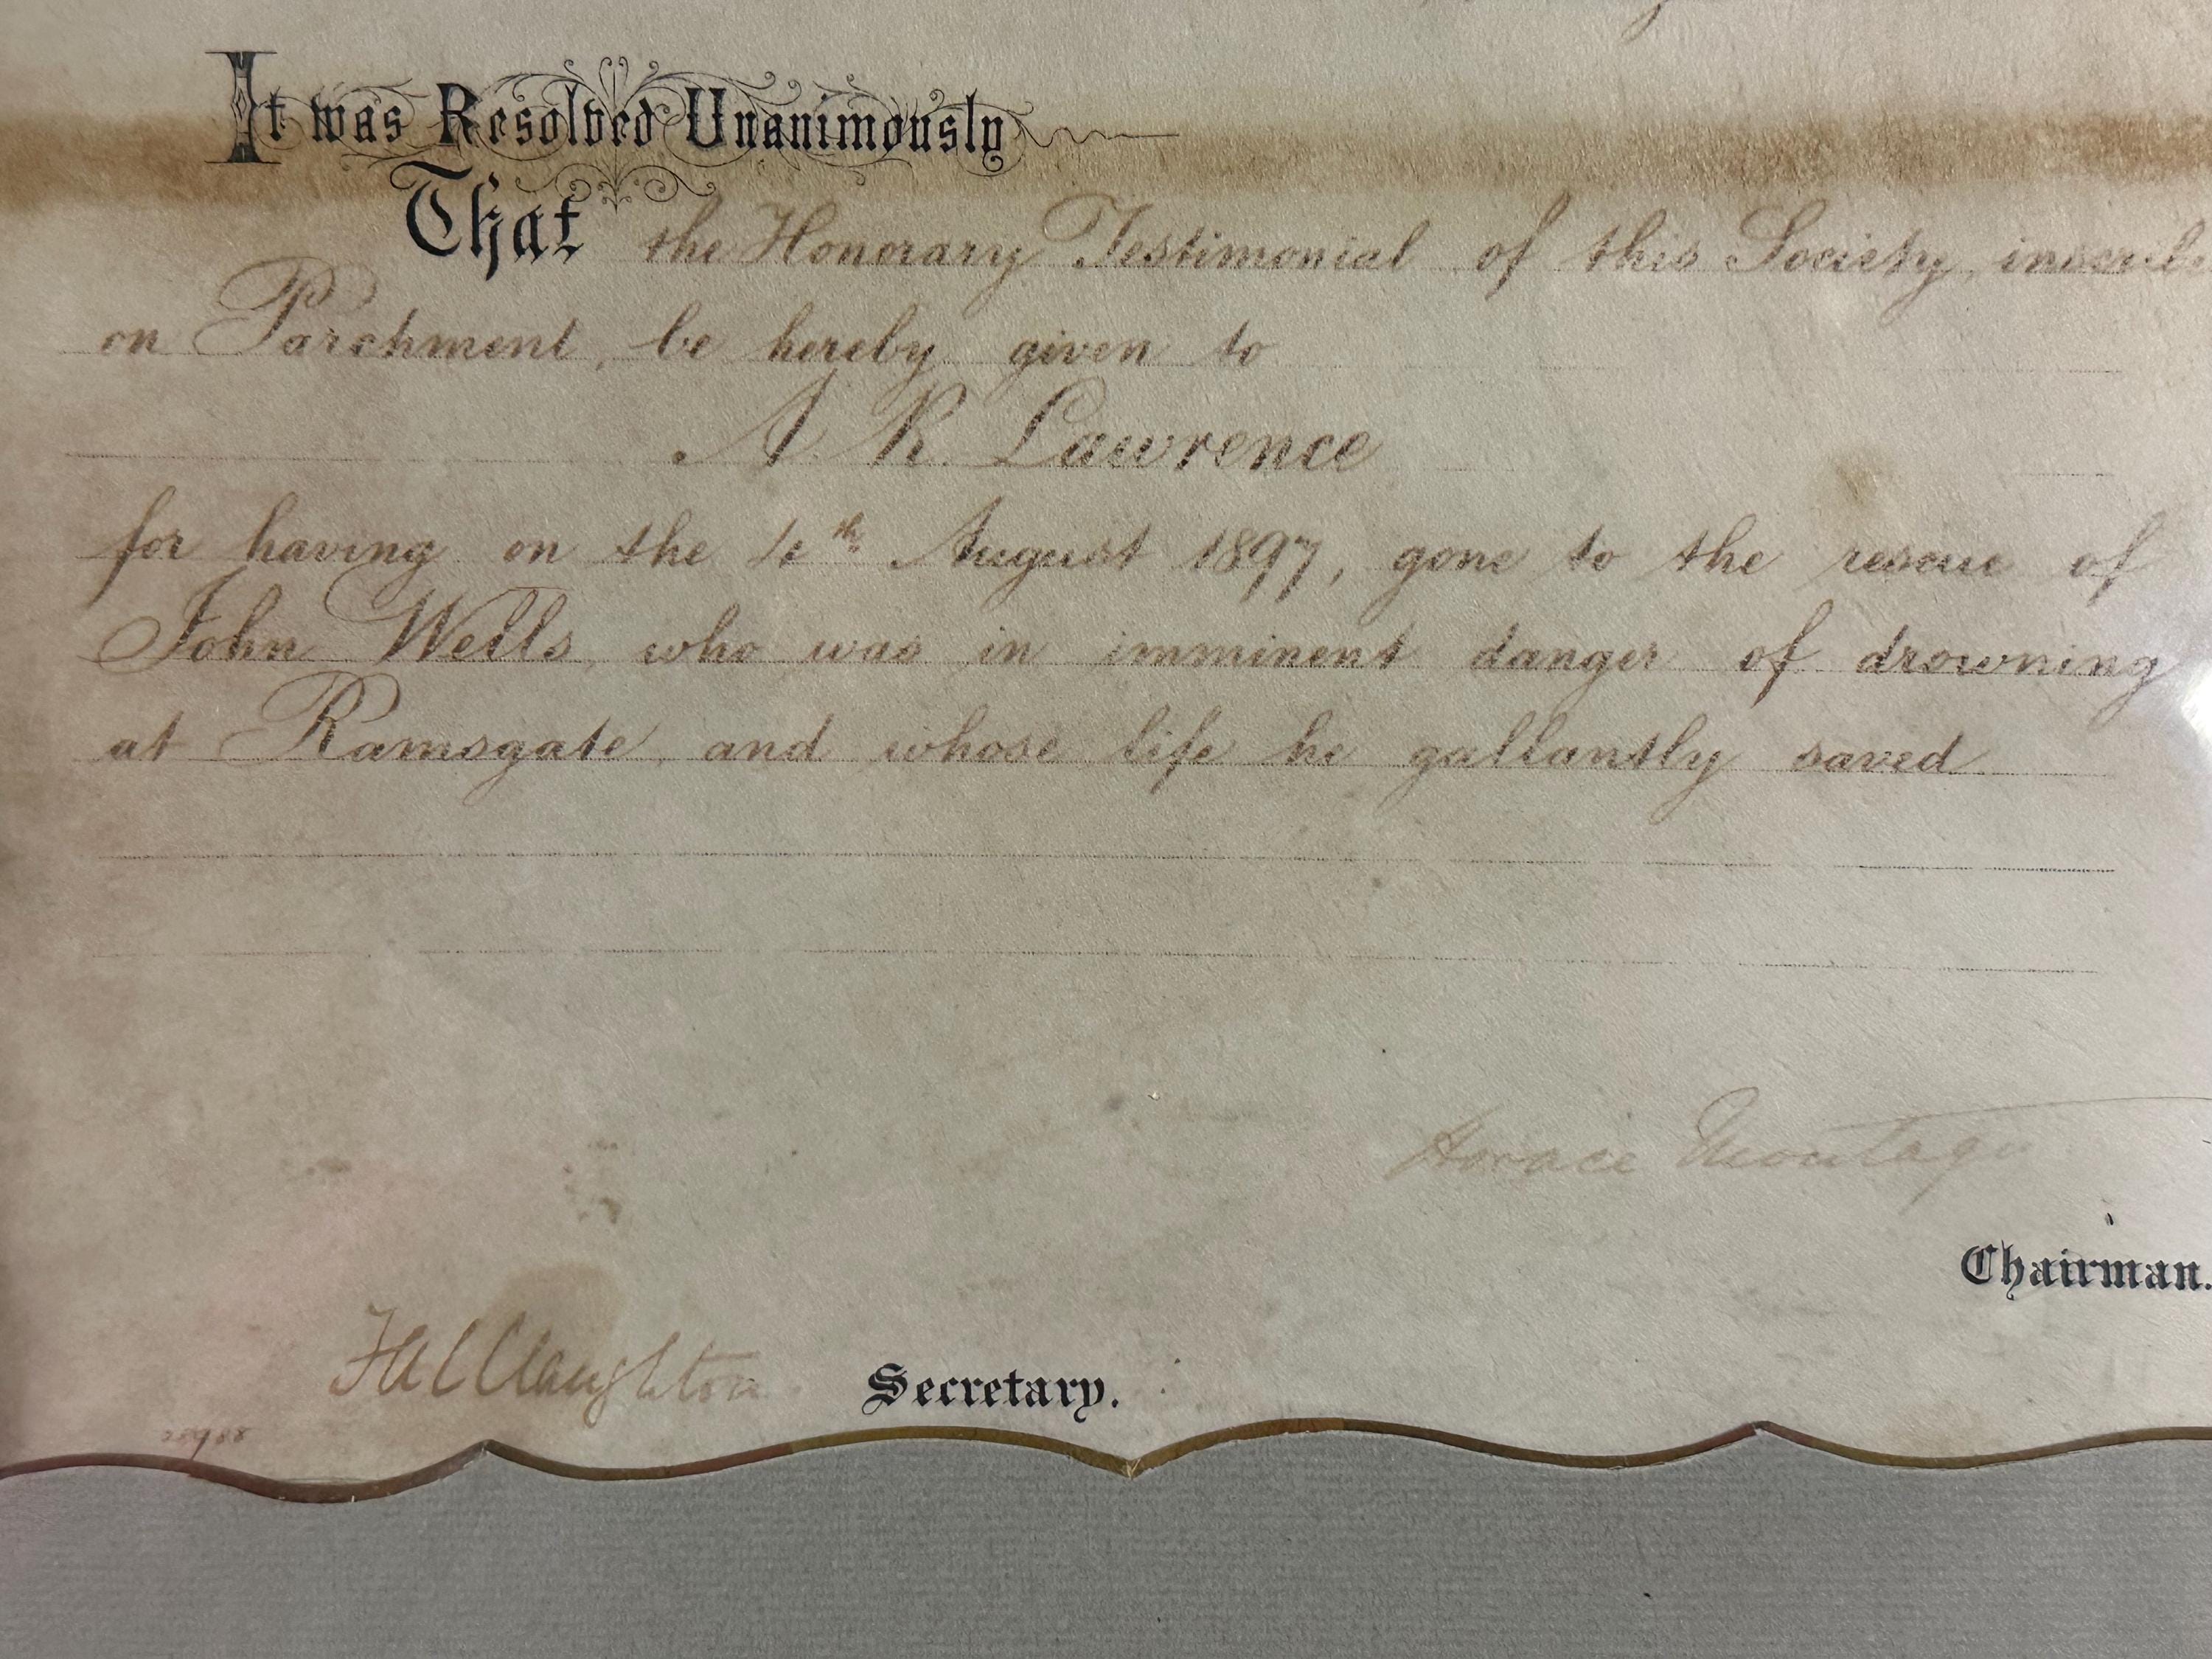 It was Resolved Unanimously
That the Honorary Testimonial of this Society, inscri
on Parchment, be hereby given to
A. R. Lawrence
for having on the 4th August 1897, gone to the rescue of
John Wells, who was in imminent danger of drowning
at Ramsgate, and whose life he gallantly saved
Horace Montagu
Chairman.
Claughton Secretary.